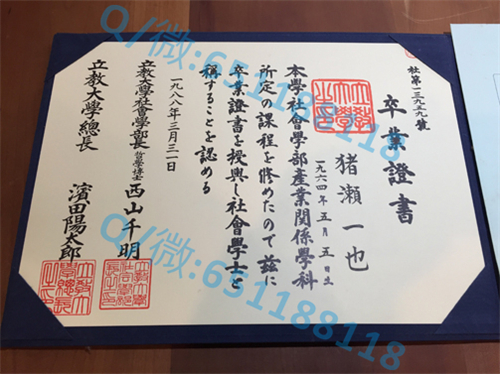 社第一三九三九號
卒業證書
猪瀬一也
一九六四年五月五日生
本學社會學部産業関係學科
所定の課程を修めたので茲に
卒業證書を授與し社會學士と
稱することを認める
一九八八年三月三一日
立教大學社會學部長
西山千明
立教大学總長
濱田陽太郎
Q/微:651188118
Q/微:651188118